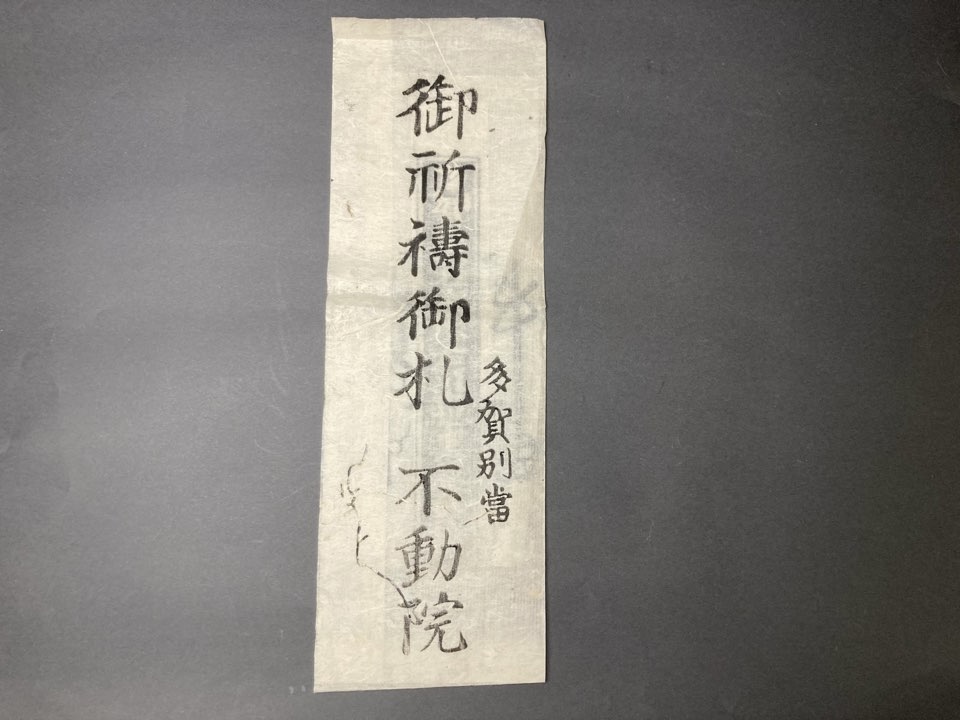 多賀別當
御祈禱御札 不動院